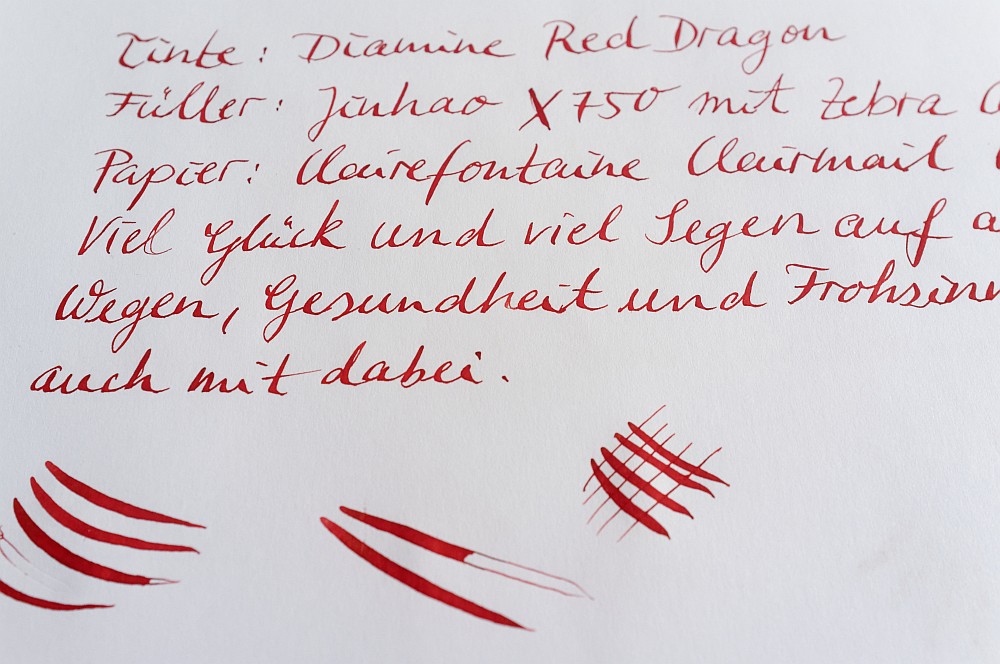 Tinte: Diamine Red Dragon
Füller: Jinhao X750 mit Zebra
Papier: Clairefontaine Clairmail
Viel Glück und viel Segen auf a
Wegen, Gesundheit und Frohsinn
auch mit dabei.